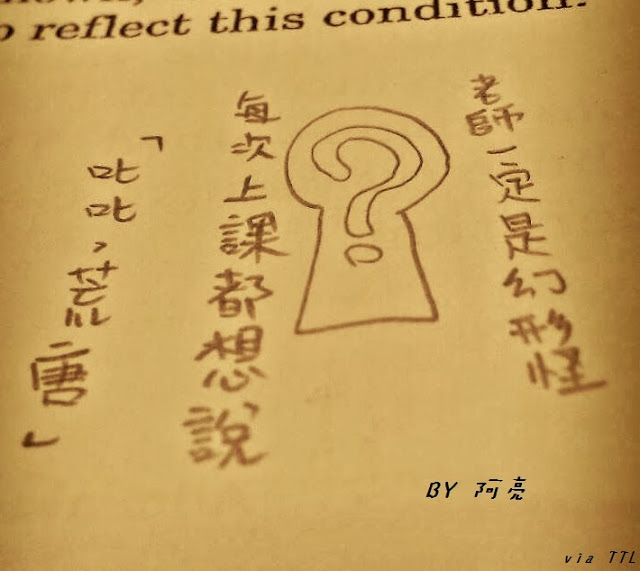 o reflect this condition.
老師一定是幻形怪
每次上課都想說
「叱叱，荒唐」
BY 阿亮
via TTL